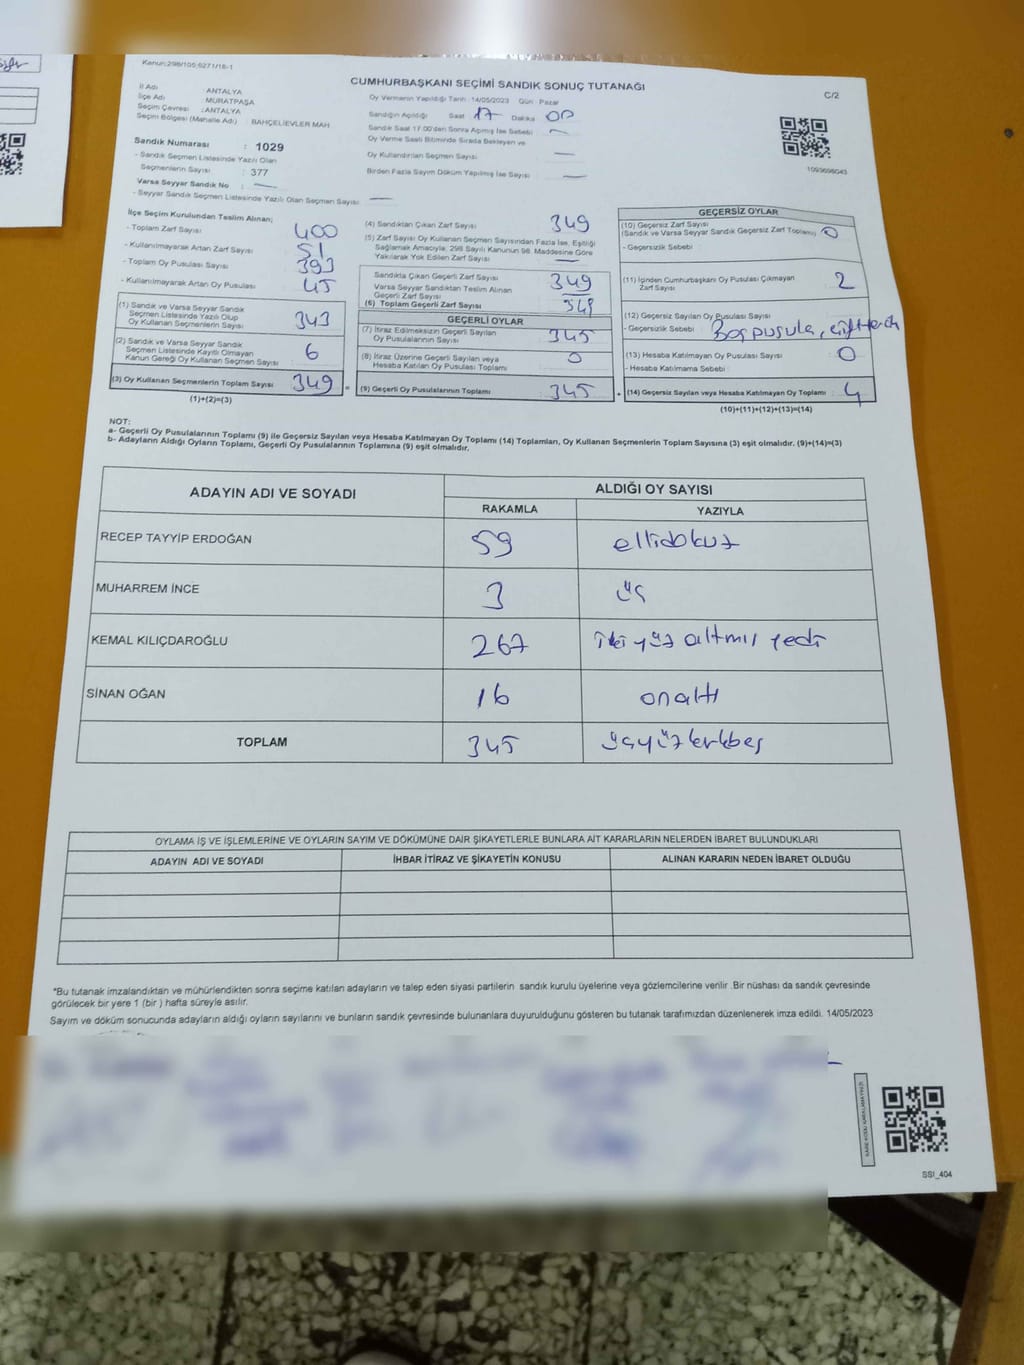 Kanun:298/105,6271/18-1
CUMHURBAŞKANI SEÇİMİ SANDIK SONUÇ TUTANAĞI
C/2
İl Adı : ANTALYA
İlçe Adı : MURATPAŞA
Seçim Çevresi : ANTALYA
Seçim Bölgesi (Mahalle Adı) : BAHÇELİEVLER MAH
Oy Vermenin Yapıldığı Tarih :14/05/2023 Gün : Pazar
Sandığın Açıldığı Saat 17 Dakika 00
Sandık Saat 17:00'den Sonra Açılmış İse Sebebi
Oy Verme Saati Bitiminde Sırada Bekleyen ve
Oy Kullandırılan Seçmen Sayısı
Birden Fazla Sayım Döküm Yapılmış İse Sayısı
1093698043
Sandık Numarası : 1029
- Sandık Seçmen Listesinde Yazılı Olan
Seçmenlerin Sayısı : 377
Varsa Seyyar Sandık No :
- Seyyar Sandık Seçmen Listesinde Yazılı Olan Seçmen Sayısı :
İlçe Seçim Kurulundan Teslim Alınan;
- Toplam Zarf Sayısı : 400
- Kullanılmayarak Artan Zarf Sayısı : 51
- Toplam Oy Pusulası Sayısı : 393
- Kullanılmayarak Artan Oy Pusulası : 45
(1) Sandık ve Varsa Seyyar Sandık
Seçmen Listesinde Yazılı Olup
Oy Kullanan Seçmenlerin Sayısı : 343
(2) Sandık ve Varsa Seyyar Sandık
Seçmen Listesinde Kayıtlı Olmayan
Kanun Gereği Oy Kullanan Seçmen Sayısı : 6
(3) Oy Kullanan Seçmenlerin Toplam Sayısı : 349 =
(1)+(2)=(3)
(4) Sandıktan Çıkan Zarf Sayısı : 349
(5) Zarf Sayısı Oy Kullanan Seçmen Sayısından Fazla İse, Eşitliği
Sağlamak Amacıyla; 298 Sayılı Kanunun 98. Maddesine Göre
Yakılarak Yok Edilen Zarf Sayısı :
Sandıkta Çıkan Geçerli Zarf Sayısı : 349
Varsa Seyyar Sandıktan Teslim Alınan
Geçerli Zarf Sayısı
(6) Toplam Geçerli Zarf Sayısı : 349
GEÇERLİ OYLAR
(7) İtiraz Edilmeksizin Geçerli Sayılan
Oy Pusulalarının Sayısı : 345
(8) İtiraz Üzerine Geçerli Sayılan veya
Hesaba Katılan Oy Pusulası Toplamı : 0
(9) Geçerli Oy Pusulalarının Toplamı : 345 +
GEÇERSİZ OYLAR
(10) Geçersiz Zarf Sayısı
(Sandık ve Varsa Seyyar Sandık Geçersiz Zarf Toplamı) 0
- Geçersizlik Sebebi :
(11) İçinden Cumhurbaşkanı Oy Pusulası Çıkmayan
Zarf Sayısı : 2
(12) Geçersiz Sayılan Oy Pusulası Sayısı :
- Geçersizlik Sebebi : Boş pusula, çift tercih
(13) Hesaba Katılmayan Oy Pusulası Sayısı : 0
- Hesaba Katılmama Sebebi :
(14) Geçersiz Sayılan veya Hesaba Katılmayan Oy Toplamı : 4
(10)+(11)+(12)+(13)=(14)
NOT:
a- Geçerli Oy Pusulalarının Toplamı (9) ile Geçersiz Sayılan veya Hesaba Katılmayan Oy Toplamı (14) Toplamları, Oy Kullanan Seçmenlerin Toplam Sayısına (3) eşit olmalıdır. (9)+(14)=(3)
b- Adayların Aldığı Oyların Toplamı, Geçerli Oy Pusulalarının Toplamına (9) eşit olmalıdır.
ADAYIN ADI VE SOYADI ALDIĞI OY SAYISI
RAKAMLA YAZIYLA
RECEP TAYYİP ERDOĞAN 59 ellidokuz
MUHARREM İNCE 3 üç
KEMAL KILIÇDAROĞLU 267 iki yüz altmış yedi
SİNAN OĞAN 16 onaltı
TOPLAM 345 üçyüzkırkbeş
OYLAMA İŞ VE İŞLEMLERİNE VE OYLARIN SAYIM VE DÖKÜMÜNE DAİR ŞİKAYETLERLE BUNLARA AİT KARARLARIN NELERDEN İBARET BULUNDUKLARI
ADAYIN ADI VE SOYADI İHBAR İTİRAZ VE ŞİKAYETİN KONUSU ALINAN KARARIN NEDEN İBARET OLDUĞU
*Bu tutanak imzalandıktan ve mühürlendikten sonra seçime katılan adayların ve talep eden siyasi partilerin sandık kurulu üyelerine veya gözlemcilerine verilir .Bir nüshası da sandık çevresinde
görülecek bir yere 1 (bir ) hafta süreyle asılır.
Sayım ve döküm sonucunda adayların aldığı oyların sayılarını ve bunların sandık çevresinde bulunanlara duyurulduğunu gösteren bu tutanak tarafımızdan düzenlenerek imza edildi. 14/05/2023
KARE KODU KARALAMAYINIZ!
SSI_404